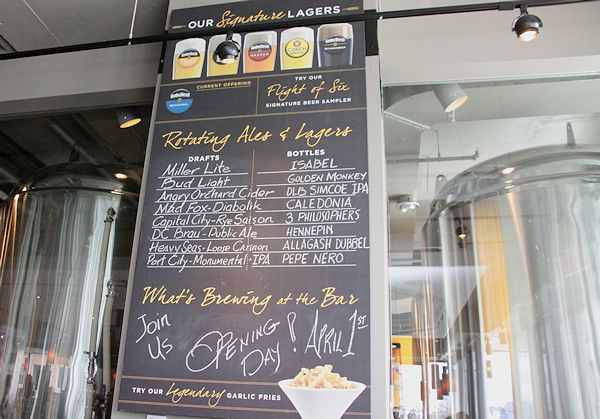 OUR Signature LAGERS
Gordon Biersch
MÄRZEN
CZECH
CURRENT OFFERING
TRY OUR
Flight of Six
SIGNATURE BEER SAMPLER
SEASONAL
Rotating Ales & Lagers
DRAFTS
Miller Lite
Bud Light
Angry Orchard Cider
Mad Fox-Diabolik
Capital City-Rye Saison
DC Brau-Public Ale
Heavy Seas-Loose Cannon
Port City-Monumental-IPA
BOTTLES
ISABEL
GOLDEN MONKEY
DLB SIMCOE IPA
CALEDONIA
3 PHILOSOPHERS
HENNEPIN
ALLAGASH DUBBEL
PEPE NERO
What's Brewing at the Bar
Join Us OPENING DAY! APRIL 1ST
TRY OUR Legendary GARLIC FRIES